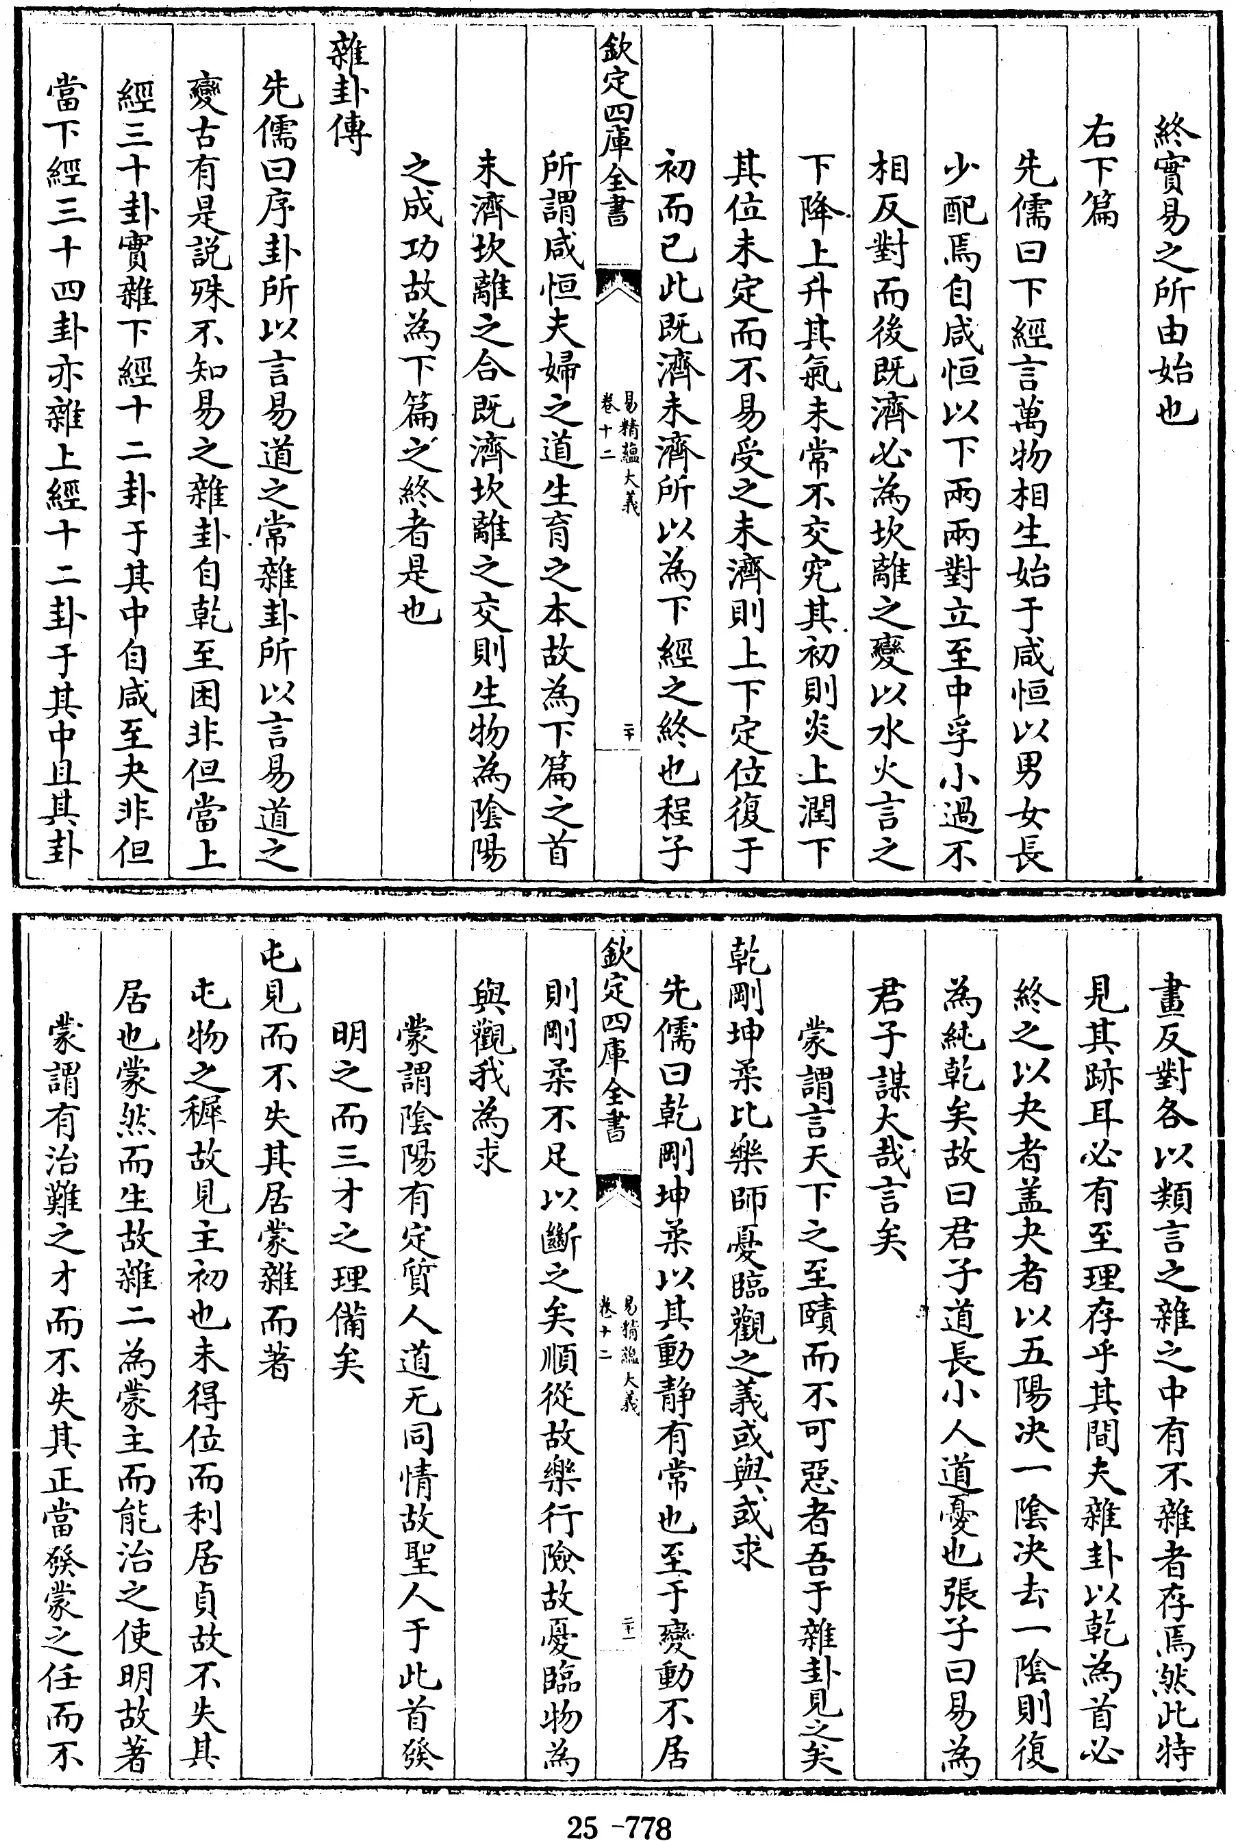 終實易之所由始也
右下篇
先儒曰下經言萬物相生始于咸恒以男女長
少配焉自咸恒以下兩兩對立至中孚小過不
相反對而後既濟必為坎離之變以水火言之
下降上升其氣未常不交究其初則炎上潤下
其位未定而不易受之未濟則上下定位復于
初而已此既濟未濟所以為下經之終也程子
欽定四庫全書
易精蘊大義
卷十二
二十
所謂咸恒夫婦之道生育之本故為下篇之首
未濟坎離之合既濟坎離之交則生物為陰陽
之成功故為下篇之終者是也
雜卦傳
先儒曰序卦所以言易道之常雜卦所以言易道之
變古有是説殊不知易之雜卦自乾至困非但當上
經三十卦實雜下經十二卦于其中自咸至夬非但
當下經三十四卦亦雜上經十二卦于其中且其卦
畫反對各以類言之雜之中有不雜者存焉然此特
見其跡耳必有至理存乎其間夫雜卦以乾為首必
終之以夬者盖夬者以五陽决一陰决去一陰則復
為純乾矣故曰君子道長小人道憂也張子曰易為
君子謀大哉言矣
蒙謂言天下之至賾而不可惡者吾于雜卦見之矣
乾剛坤柔比樂師憂臨觀之義或與或求
先儒曰乾剛坤柔以其動静有常也至于變動不居
欽定四庫全書
易精蘊大義
卷十二
二十一
則剛柔不足以斷之矣順從故樂行險故憂臨物為
與觀我為求
蒙謂陰陽有定質人道无同情故聖人于此首發
明之而三才之理備矣
屯見而不失其居蒙雜而著
屯物之穉故見主初也未得位而利居貞故不失其
居也蒙然而生故雜二為蒙主而能治之使明故著
蒙謂有治難之才而不失其正當發蒙之任而不
25-778